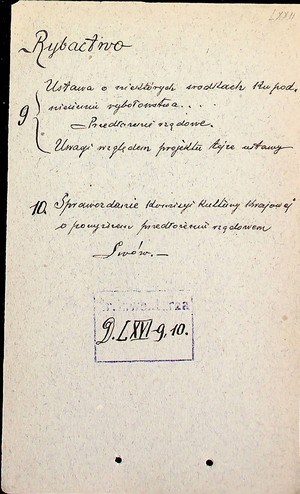 LXXII
Rybactwo
9 Ustawa o niektórych środkach ku pod,
niesieniu rybołowstwa . . . .
Przedłożenie rządowe.
Uwagi względem projektu tejże ustawy
10. Sprawozdanie Komisyi Kultury Krajowej
o powyższem przedłożeniu rządowem
Lwów. —
D. LXVI-9, 10.